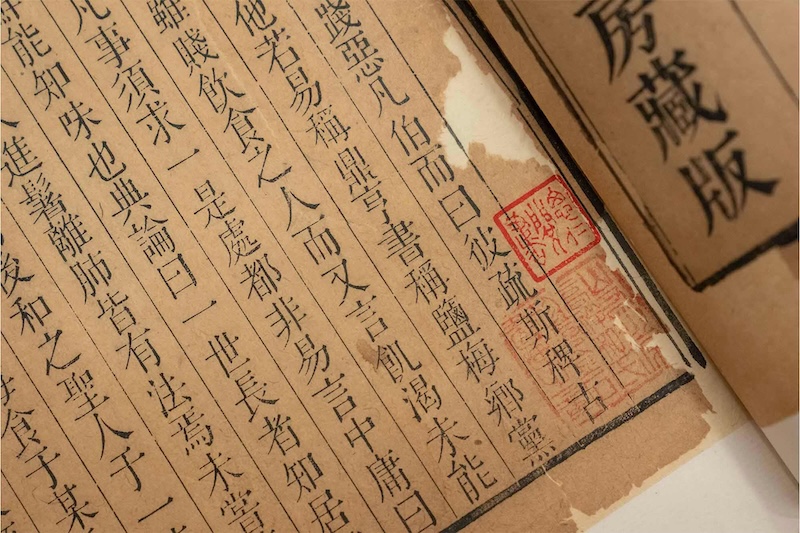 房藏版
踐惡凡伯而曰彼疏斯稗古
他若易稱鼎亨書稱鹽梅鄉黨
雖賤飲食之人而又言飢渴未能
凡事須求一是處都非易言中庸曰
鮮能知味也典論曰一世長者知居
人進鬐離肺皆有法焉未嘗
後和之聖人于一
食于某